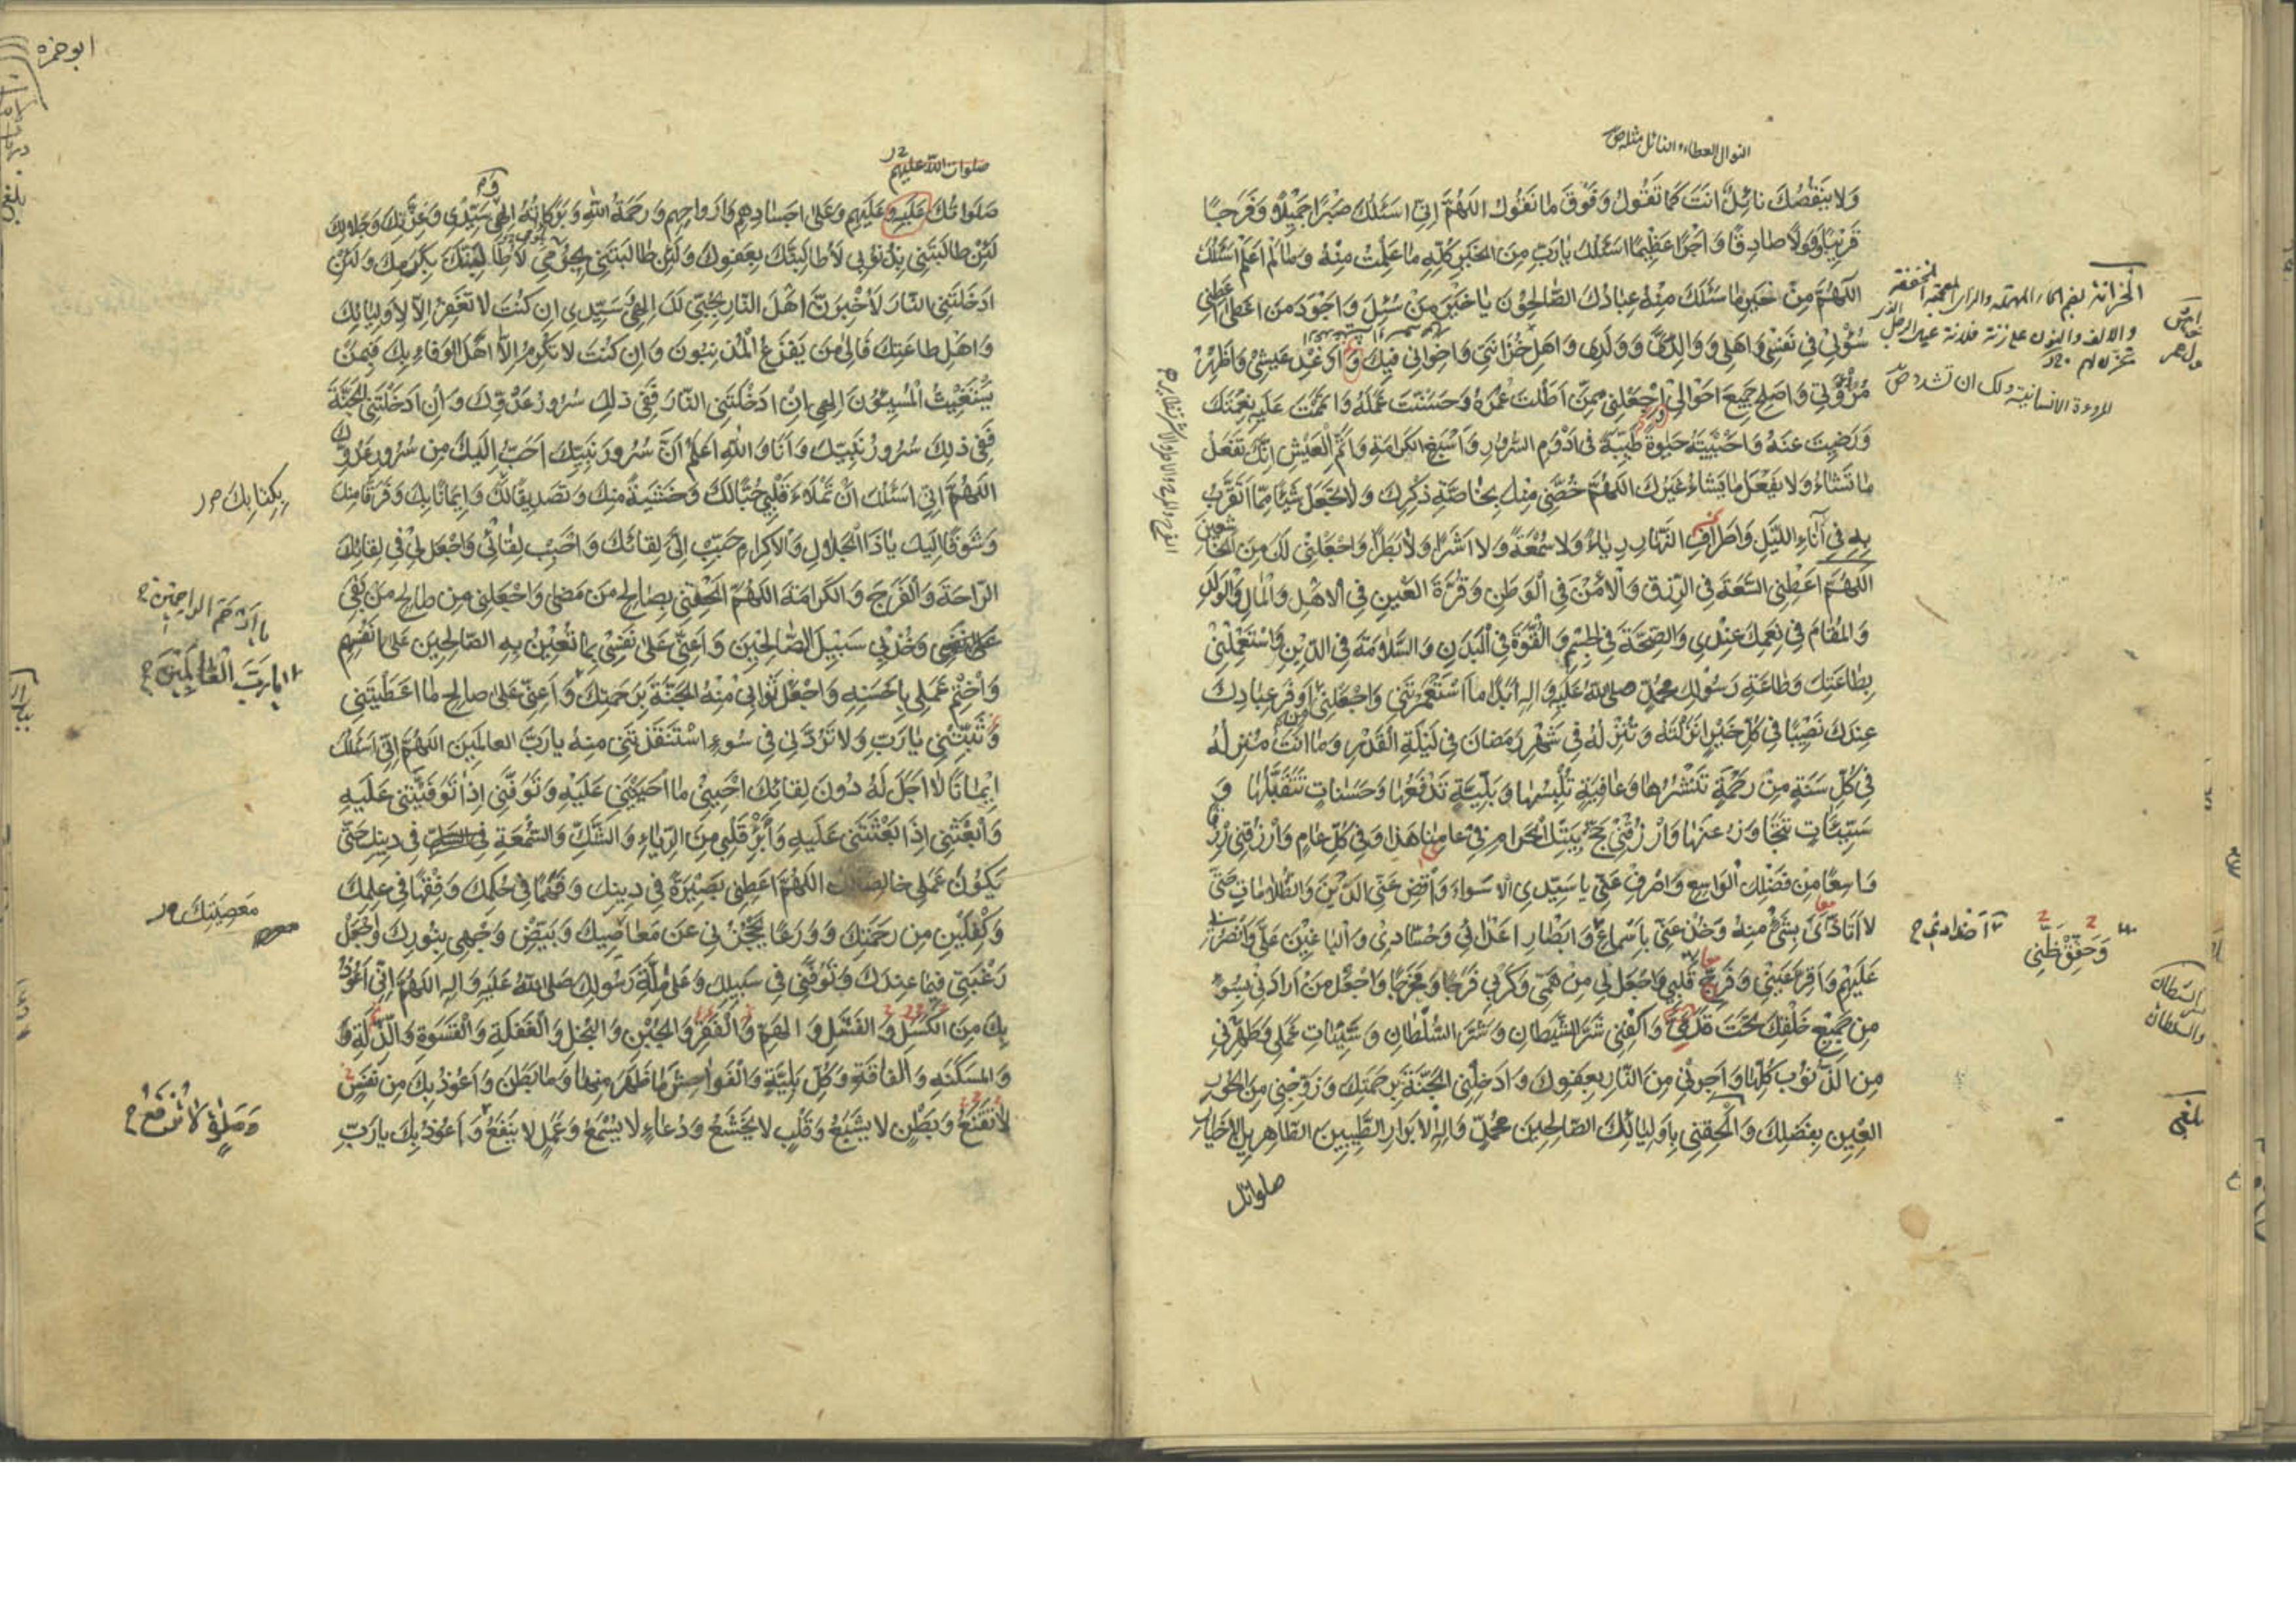 النوال العطاء والنائل مثله ص
وَلا يَنقُصُكَ نائِلٌ اَنتَ كَما تَقُولُ وَفَوْقَ ما نَقُولُ اللهُمَّ اِنّي اَسئَلُكَ صَبْرًا جَميلًا وَفَرَجًا
قَريبًا وَقَوْلًا صادِقًا وَاَجْرًا عَظيمًا اَسئَلُكَ يارَبِّ مِنَ الخَيْرِ كُلِّهِ ما عَلِمْتُ مِنْهُ وَمالَمْ اَعلَمْ اَسئَلُكَ
اللهُمَّ مِنْ خَيرِ ما سَئَلَكَ مِنْهُ عِبادُكَ الصّالِحُونَ ياخَيْرَ مَنْ سُئِلَ وَاَجْوَدَ مَن اَعطى اَعطِني
سُؤْلي في نَفْسي وَاَهلي وَوالِدَيَّ وَوَلَدي وَاَهلِ حُزانَتي وَاِخْواني فيكَ وَاَرْغِدْ عَيشي وَاَظْهِرْ
مُرُوَّتي وَاَصلِح جَميعَ اَحْوالي وَاجْعَلني مِمَّنْ اَطَلْتَ عُمْرَهُ وَحَسَّنْتَ عَمَلَهُ وَاَتْمَمْتَ عَلَيهِ نِعْمَتَكَ
وَرَضيتَ عَنهُ وَاَحْيَيْتَهُ حَيوةً طَيِّبَةً في اَدْوَمِ السُّرُورِ وَاَسْبَغِ الكَرامَةِ وَاَتَمِّ العَيْشِ اِنَّكَ تَفْعَلُ
ما تَشاءُ وَلا يَفْعَلُ ما يَشاءُ غَيرُكَ اللهُمَّ خُصَّني مِنْكَ بِخاصَّةِ ذِكْرِكَ وَلا تَجْعَلْ شَيْئًا مِمّا اَتَقَرَّبُ
بِهِ في آناءِ اللَّيْلِ وَاَطرافِ النَّهارِ رِياءً وَلا سُمْعَةً وَلا اَشَرًا وَلا بَطَرًا وَاجْعَلْني لَكَ مِنَ الخاشِعينَ
اللهُمَّ اَعْطِني السَّعَةَ فِي الرِّزْقِ وَالاَمْنَ فِي الوَطَنِ وَقُرَّةَ العَيْنِ فِي الاَهْلِ وَالمالِ وَالوَلَدِ
وَالمُقامَ في نِعَمِكَ عِنْدي وَالصِّحَّةَ فِي الجِسْمِ وَالقُوَّةَ فِي البَدَنِ وَالسَّلامَةَ فِي الدّينِ وَاسْتَعْمِلْني
بِطاعَتِكَ وَطاعَةِ رَسُولِكَ مُحَمَّدٍ صلى اللهُ عَلَيهِ وَالِهِ اَبَدًا مَا اسْتَعْمَرْتَني وَاجْعَلني مِن اَوْفَرِ عِبادِكَ
عِنْدَكَ نَصيبًا في كُلِّ خَيْرٍ اَنزَلْتَهُ وَتُنْزِلُهُ في شَهْرِ رَمَضانَ في لَيْلَةِ القَدْرِ وَما اَنْتَ مُنْزِلُهُ
في كُلِّ سَنَةٍ مِنْ رَحْمَةٍ تَنْشُرُها وَعافِيَةٍ تُلْبِسُها وَبَلِيَّةٍ تَدْفَعُها وَحَسَناتٍ تَتَقَبَّلُها وَ
سَيِّئاتٍ تَتَجاوَزُ عَنها وَارْزُقْني حَجَّ بَيْتِكَ الحَرامِ في عامِنا هَذا وَفي كُلِّ عامٍ وَارْزُقْني رِزْقًا
وَاسِعًا مِن فَضْلِكَ الواسِعِ وَاصْرِفْ عَنّي يا سَيِّدِي الاَسْواءَ وَاقْضِ عَنِّي الدَّيْنَ وَالظُّلاماتِ حَتّى
لا اَتَاَذّى بِشَيْءٍ مِنْهُ وَخُذْ عَنّي بِاَسْماعِ وَاَبْصارِ اَعْدائي وَحُسّادي وَالباغينَ عَلَيَّ وَانْصُرْني
عَلَيْهِم وَاَقِرَّ عَيْني وَفَرِّحْ قَلْبي وَاجْعَل لي مِنْ هَمّي وَكَرْبي فَرَجًا وَمَخْرَجًا وَاجْعَلْ مَنْ اَرادَني بِسُوءٍ
مِن جَميعِ خَلْقِكَ تَحْتَ قَدَمَيَّ وَاكْفِني شَرَّ الشَّيْطانِ وَشَرَّ السُّلْطانِ وَسَيِّئاتِ عَمَلي وَطَهِّرْني
مِنَ الذُّنُوبِ كُلِّها وَاَجِرْني مِنَ النّارِ بِعَفْوِكَ وَاَدْخِلْني الجَنَّةَ بِرَحمَتِكَ وَزَوِّجْني مِنَ الحُورِ
العينِ بِفَضْلِكَ وَاَلْحِقْني بِاَوْلِيائِكَ الصّالِحينَ مُحَمَّدٍ وَالِهِ الاَبْرارِ الطَّيِّبينَ الطّاهِرينَ الاَخيارِ
صلواتك
وَحَقِّقْ ظَنّي
ابوحمزه
صلوات الله عليهم
صَلَواتُكَ عَلَيهِ وَعَلَيهِم وَعَلى اَجسادِهِم وَاَرواحِهِم وَرَحمَةُ اللهِ وَبَرَكاتُهُ اِلهي سَيِّدي وَعِزَّتِكَ وَجَلالِكَ
لَئِنْ طالَبْتَني بِذُنُوبي لَاُطالِبَنَّكَ بِعَفوِكَ وَلَئِنْ طالَبْتَني بِجُرْمي لَاُطالِبَنَّكَ بِكَرَمِكَ وَلَئِنْ
اَدخَلْتَني النّارَ لَاُخْبِرَنَّ اَهْلَ النّارِ بِحُبّي لَكَ اِلهي سَيِّدي اِن كُنْتَ لا تَغْفِرُ اِلّا لِاَوْلِيائِكَ
وَاَهْلِ طاعَتِكَ فَاِلى مَنْ يَفْزَعُ المُذْنِبُونَ وَاِن كُنْتَ لا تُكْرِمُ اِلّا اَهْلَ الوَفاءِ بِكَ فَبِمَنْ
يَسْتَغيثُ المُسيؤُنَ اِلهي اِنْ اَدْخَلْتَني النّارَ فَفي ذلِكَ سُرُورُ عَدُوِّكَ وَاِنْ اَدخَلْتَني الجَنَّةَ
فَفي ذلِكَ سُرُورُ نَبِيِّكَ وَاَنا وَاللهِ اَعلَمُ اَنَّ سُرُورَ نَبِيِّكَ اَحَبُّ اِلَيْكَ مِن سُرُورِ عَدُوِّكَ
اللهُمَّ اِنّي اَسئَلُكَ اَنْ تَمْلَاءَ قَلْبي حُبًّا لَكَ وَخَشْيَةً مِنكَ وَتَصديقًا لَكَ وَايمانًا بِكَ وَفَرَقًا مِنكَ
بِكِتابِكَ
وَشَوْقًا اِلَيكَ ياذَا الجَلالِ وَالاِكرامِ حَبِّبْ اِلَيَّ لِقائَكَ وَاَحْبِبْ لِقائي وَاجْعَل لي في لِقائِكَ
الرّاحَةَ وَالفَرَجَ وَالكَرامَةَ اللهُمَّ اَلحِقْني بِصالِحِ مَن مَضى وَاجْعَلني مِن صالِحِ مَن بَقِيَ
يا اَرْحَمَ الراحِمينَ
وَخُذْ بي سَبيلَ الصّالِحينَ وَاَعِنّي عَلى نَفْسي بِما تُعينُ بِهِ الصّالِحينَ عَلى اَنفُسِهِم
يارَبَّ العالَمينَ
وَاخْتِم عَمَلي بِاَحسَنِهِ وَاجْعَلْ ثَوابي مِنْهُ الجَنَّةَ بِرَحمَتِكَ وَاَعِنّي عَلى صالِحِ ما اَعْطَيْتَني
وَثَبِّتْني يارَبِّ وَلا تَرُدَّني في سُوءٍ اسْتَنقَذْتَني مِنهُ يارَبَّ العالَمينَ اللهُمَّ اِنّي اَسئَلُكَ
ايمانًا لا اَجَلَ لَهُ دُونَ لِقائِكَ اَحْيِني ما اَحيَيْتَني عَلَيهِ وَتَوَفَّني اِذا تَوَفَّيْتَني عَلَيهِ
وَابْعَثْني اِذا بَعَثْتَني عَلَيهِ وَاَبْرِءْ قَلبي مِنَ الرِّياءِ وَالشَّكِّ وَالسُّمْعَةِ في دينِكَ حَتّى
يَكُونَ عَمَلي خالِصًا لَكَ اللهُمَّ اَعطِني بَصيرَةً في دينِكَ وَفَهْمًا في حُكمِكَ وَفِقْهًا في عِلمِكَ
مَعصِيَتِكَ
وَكِفْلَيْنِ مِن رَحمَتِكَ وَوَرَعًا يَحْجُزُني عَن مَعاصيكَ وَبَيِّضْ وَجْهي بِنُورِكَ وَاجْعَلْ
رَغْبَتي فيما عِندَكَ وَتَوَفَّني في سَبيلِكَ وَعَلى مِلَّةِ رَسُولِكَ صَلى اللهُ عَلَيهِ وَالِهِ اللهُمَّ اِنّي اَعُوذُ
بِكَ مِنَ الكَسَلِ وَالفَشَلِ وَالهَمِّ وَالفَقرِ وَالجُبْنِ وَالبُخلِ وَالغَفلَةِ وَالقَسوَةِ وَالذِّلَّةِ وَ
وَالمَسكَنَةِ وَالفاقَةِ وَكُلِّ بَلِيَّةٍ وَالفَواحِشِ ما ظَهَرَ مِنها وَما بَطَنَ وَاَعُوذُ بِكَ مِن نَفْسٍ
وَصَلوةٍ لا تُرْفَعُ
لا تَقْنَعُ وَبَطْنٍ لا يَشْبَعُ وَقَلْبٍ لا يَخشَعُ وَدُعاءٍ لا يُسْمَعُ وَعَمَلٍ لا يَنفَعُ وَاَعُوذُ بِكَ يارَبِّ